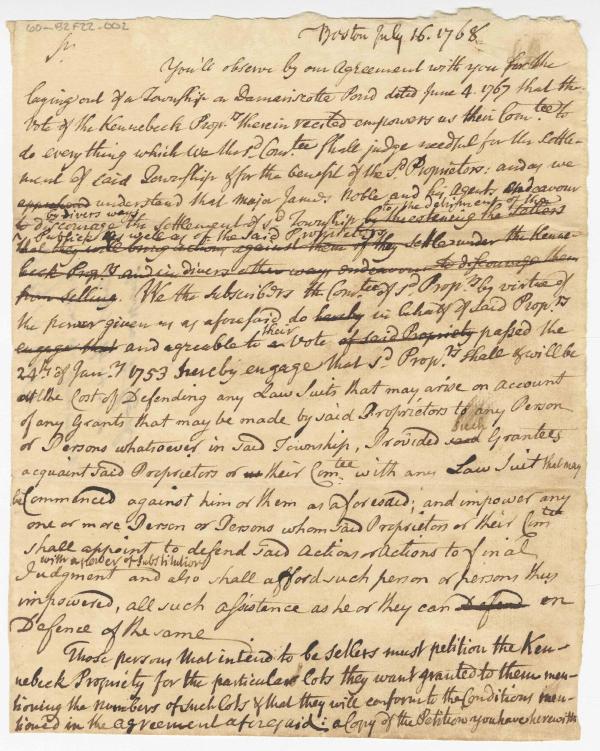 60-82F22-002
Boston July 16. 1768
Sr.
You'll observe by our Agreement with you for the
laying out of a Township on Damariscotta Pond dated June 4. 1767 that the
Vote of the Kennebeck Propts. therein recited empowers us their Comtee. to
do everything which we the sd. Comtee. shall judge needful for the Settle-
ment of said Township & for the benefit of the sd. Proprietors: and as we
apprehend understand that Major James Noble and his Agents endeavour
by divers ways to the detriment of the
to discourage the Settlement of sd. Township by threatening the Settlers
Publick as well as of the said Proprietors
that they will bring actions against them if they settle under the Kenne-
beck Propts. and in divers other ways endeavour to discourage them
from selling. We the subscribers the Comtee. of sd. Propts. by virtue of
the power given us as aforesaid do hereby in behalf of said Propts.
their
engage that and agreable to a Vote of said Propriety passed the
24th. of Jany. 1753 hereby engage that sd. Propts. shall & will be
at the Cost of Defending any Law Suits that may arise on account
of any Grants that may be made by said Proprietors to any Person
such
or Persons whatsoever in said Township, Provided said Grantees
acquaint said Proprietors or their Comtee. with any Law Suit that may
be Commenced against him or them as aforesaid; and impower any
one or more Person or Persons whom said Proprietors or their Comtee
shall appoint to defend said Actions or Actions to final
with a power of Substitution
Judgment and also shall afford such person or persons thus
impowered, all such assistance as he or they can Defend on
Defence of the same
Those persons that intend to be setlers must petition the Ken-
nebeck Propriety for the particular Lots they want granted to them men-
tioning the numbers of such Lots & that they will conform to the Conditions men-
tioned in the agreement aforesaid: a Copy of the Petition you have herewith